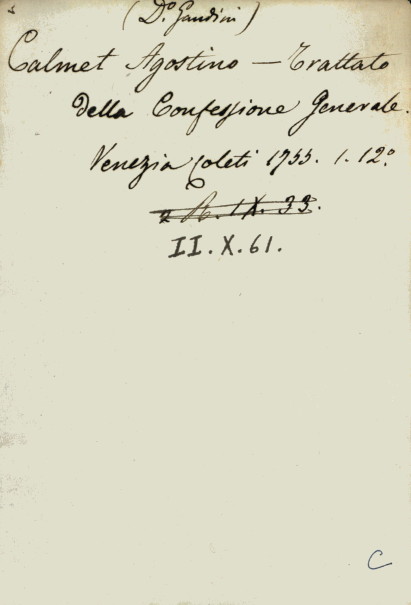 (D.º Gandini)
Calmet Agostino — Trattato
della Confessione Generale.
Venezia Coleti 1755. 1. 12º
2 A. IX. 33.
II. X. 61.
C